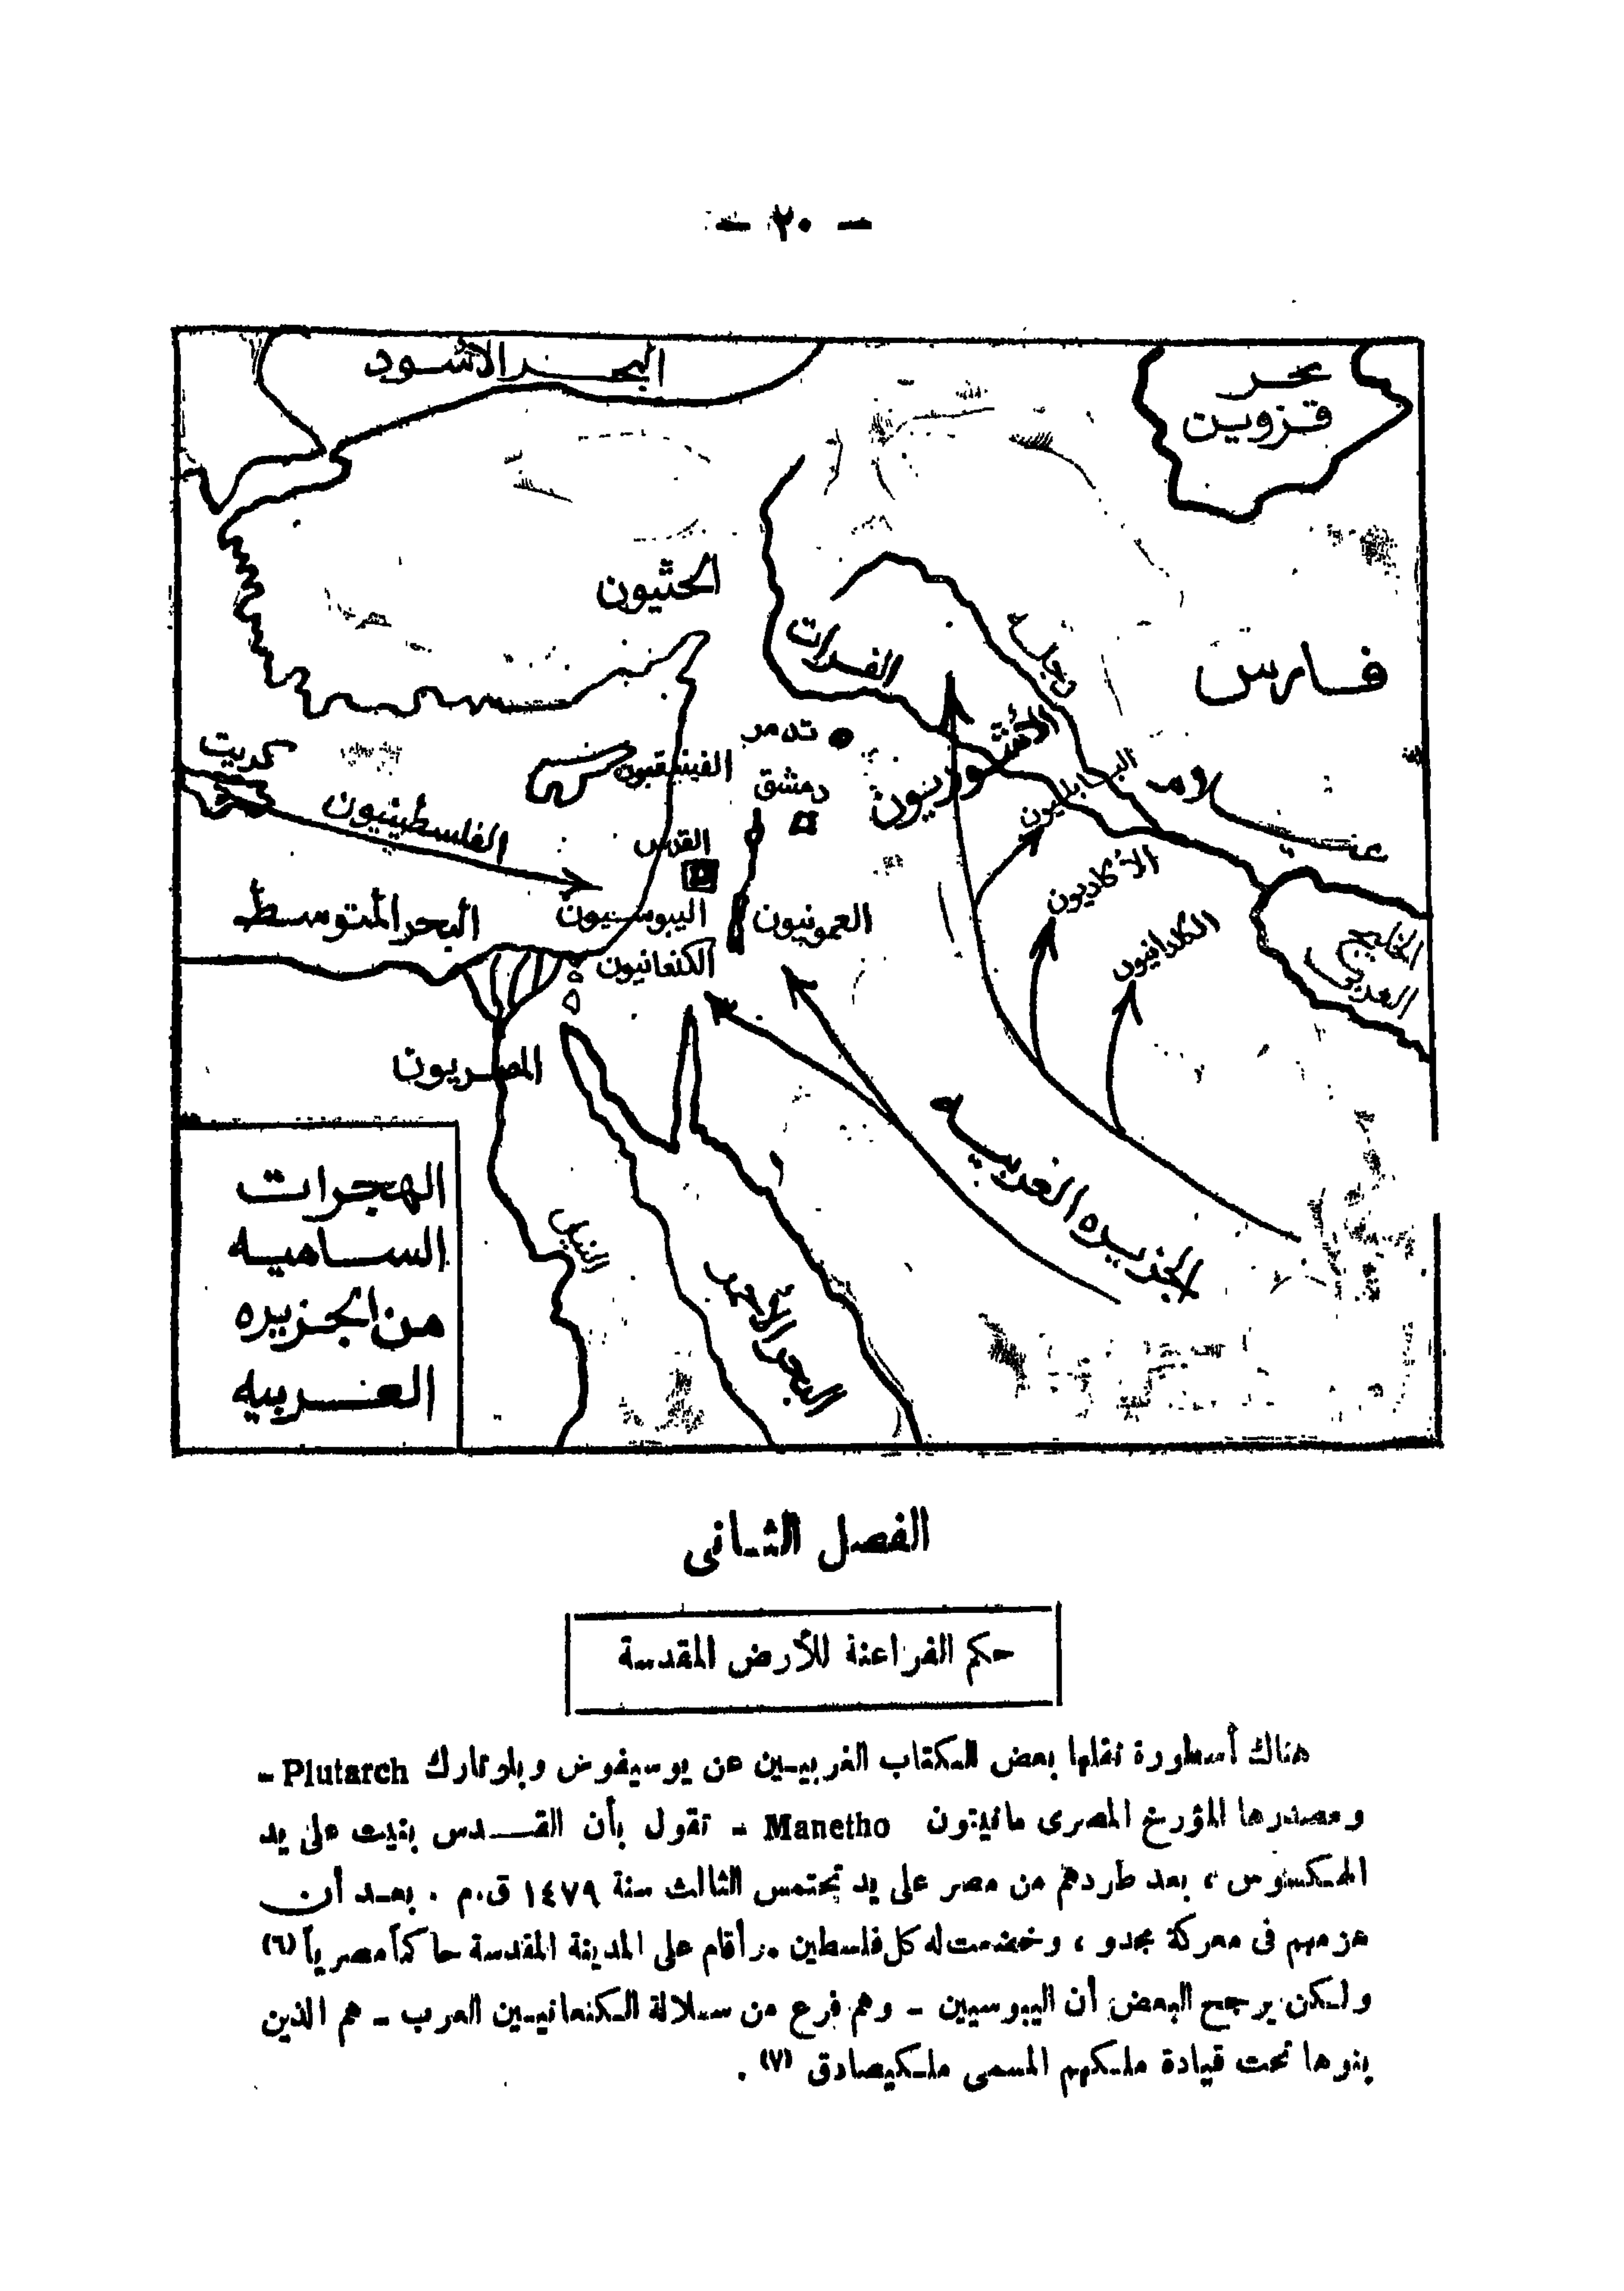 — ٢٠ —
البحر الأسود
بحر
قزوين
الحثيون
الفرات
دجلة
فارس
كريت
تدمر
الفينيقيون
دمشق
الأشوريون
البابليون
الفلسطينيون
القدس
الأكاديون
البحر المتوسط
اليبوسيون
العمونيون
الكلدانيون
الخليج
العربى
الكنعانيون
المصريون
الجزيره العربيه
النيل
البحر الأحمر
الهجرات
الساميه
من الجزيره
العربيه
الفصل الثانى
حكم الفراعنة للأرض المقدسة
هناك أسطورة نقلها بعض الكتاب الغربيين عن يوسيفوس وبلوتارك Plutarch -
ومصدرها المؤرخ المصرى مانيتون Manetho - تقول بأن القدس بنيت على يد
الهكسوس ، بعد طردهم من مصر على يد تحتمس الثالث سنة ١٤٧٩ ق.م . بعد أن
هزمهم فى معركة مجدو ، وخضعت له كل فلسطين . وأقام على المدينة المقدسة حاكماً مصرياً (٦)
ولكن يرجح البعض أن اليبوسيين - وهم فرع من سلالة الكنعانيين العرب - هم الذين
بنوها تحت قيادة ملكهم المسمى ملكيصادق (٧) .